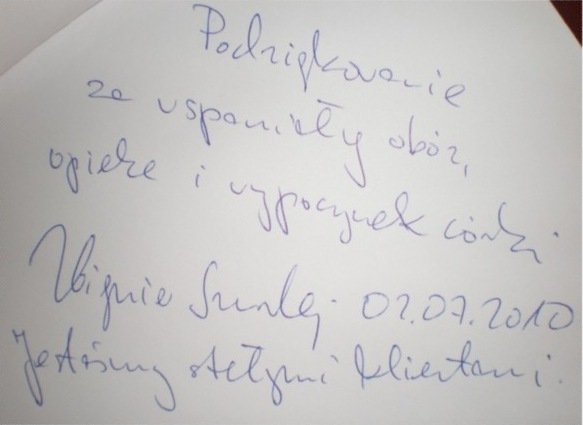 Podziękowanie
za wspaniały obóz,
opiekę i wypoczynek córki.
Zbignie 02.07.2010
Jesteśmy stałymi klientami.